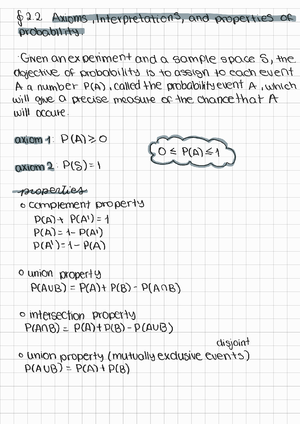 § 2.2 Axioms, Interpretations, and properties of
probability
Given an experiment and a sample space S, the
objective of probability is to assign to each event
A a number P(A), called the probability event A, which
will give a precise measure of the chance that A
will occure.
axiom 1: P(A) ≥ 0
0 ≤ P(A) ≤ 1
axiom 2: P(S) = 1
properties
complement property
P(A) + P(A') = 1
P(A) = 1 - P(A')
P(A') = 1 - P(A)
union property
P(A∪B) = P(A) + P(B) - P(A∩B)
intersection property
P(A∩B) = P(A) + P(B) - P(A∪B)
disjoint
union property (mutually exclusive events)
P(A∪B) = P(A) + P(B)